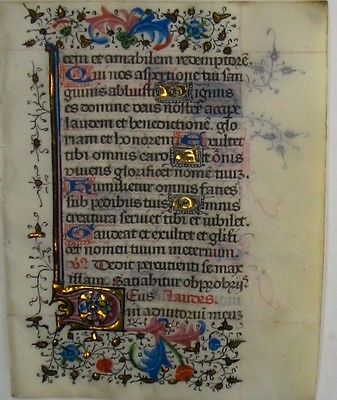 dem et amabilem redemptorē
Qui nos aspersione tui san
guinis abluisti Dignus
es domine deus noster accipe
laudem et benedictionē glo
riam et honorem Exultet
tibi omnis caro Et ōnis
viuens glorificet nomē tuū
Humilietur omnis facies
sub pedibus tuis Omnis
creatura seruiet tibi et iubilet
Gaudeat et exultet et glificet
nomen tuum
Dedit percutienti se max
illam. Saciabitur obprobrijs
Deus Laudes.
in adiutoriū meū